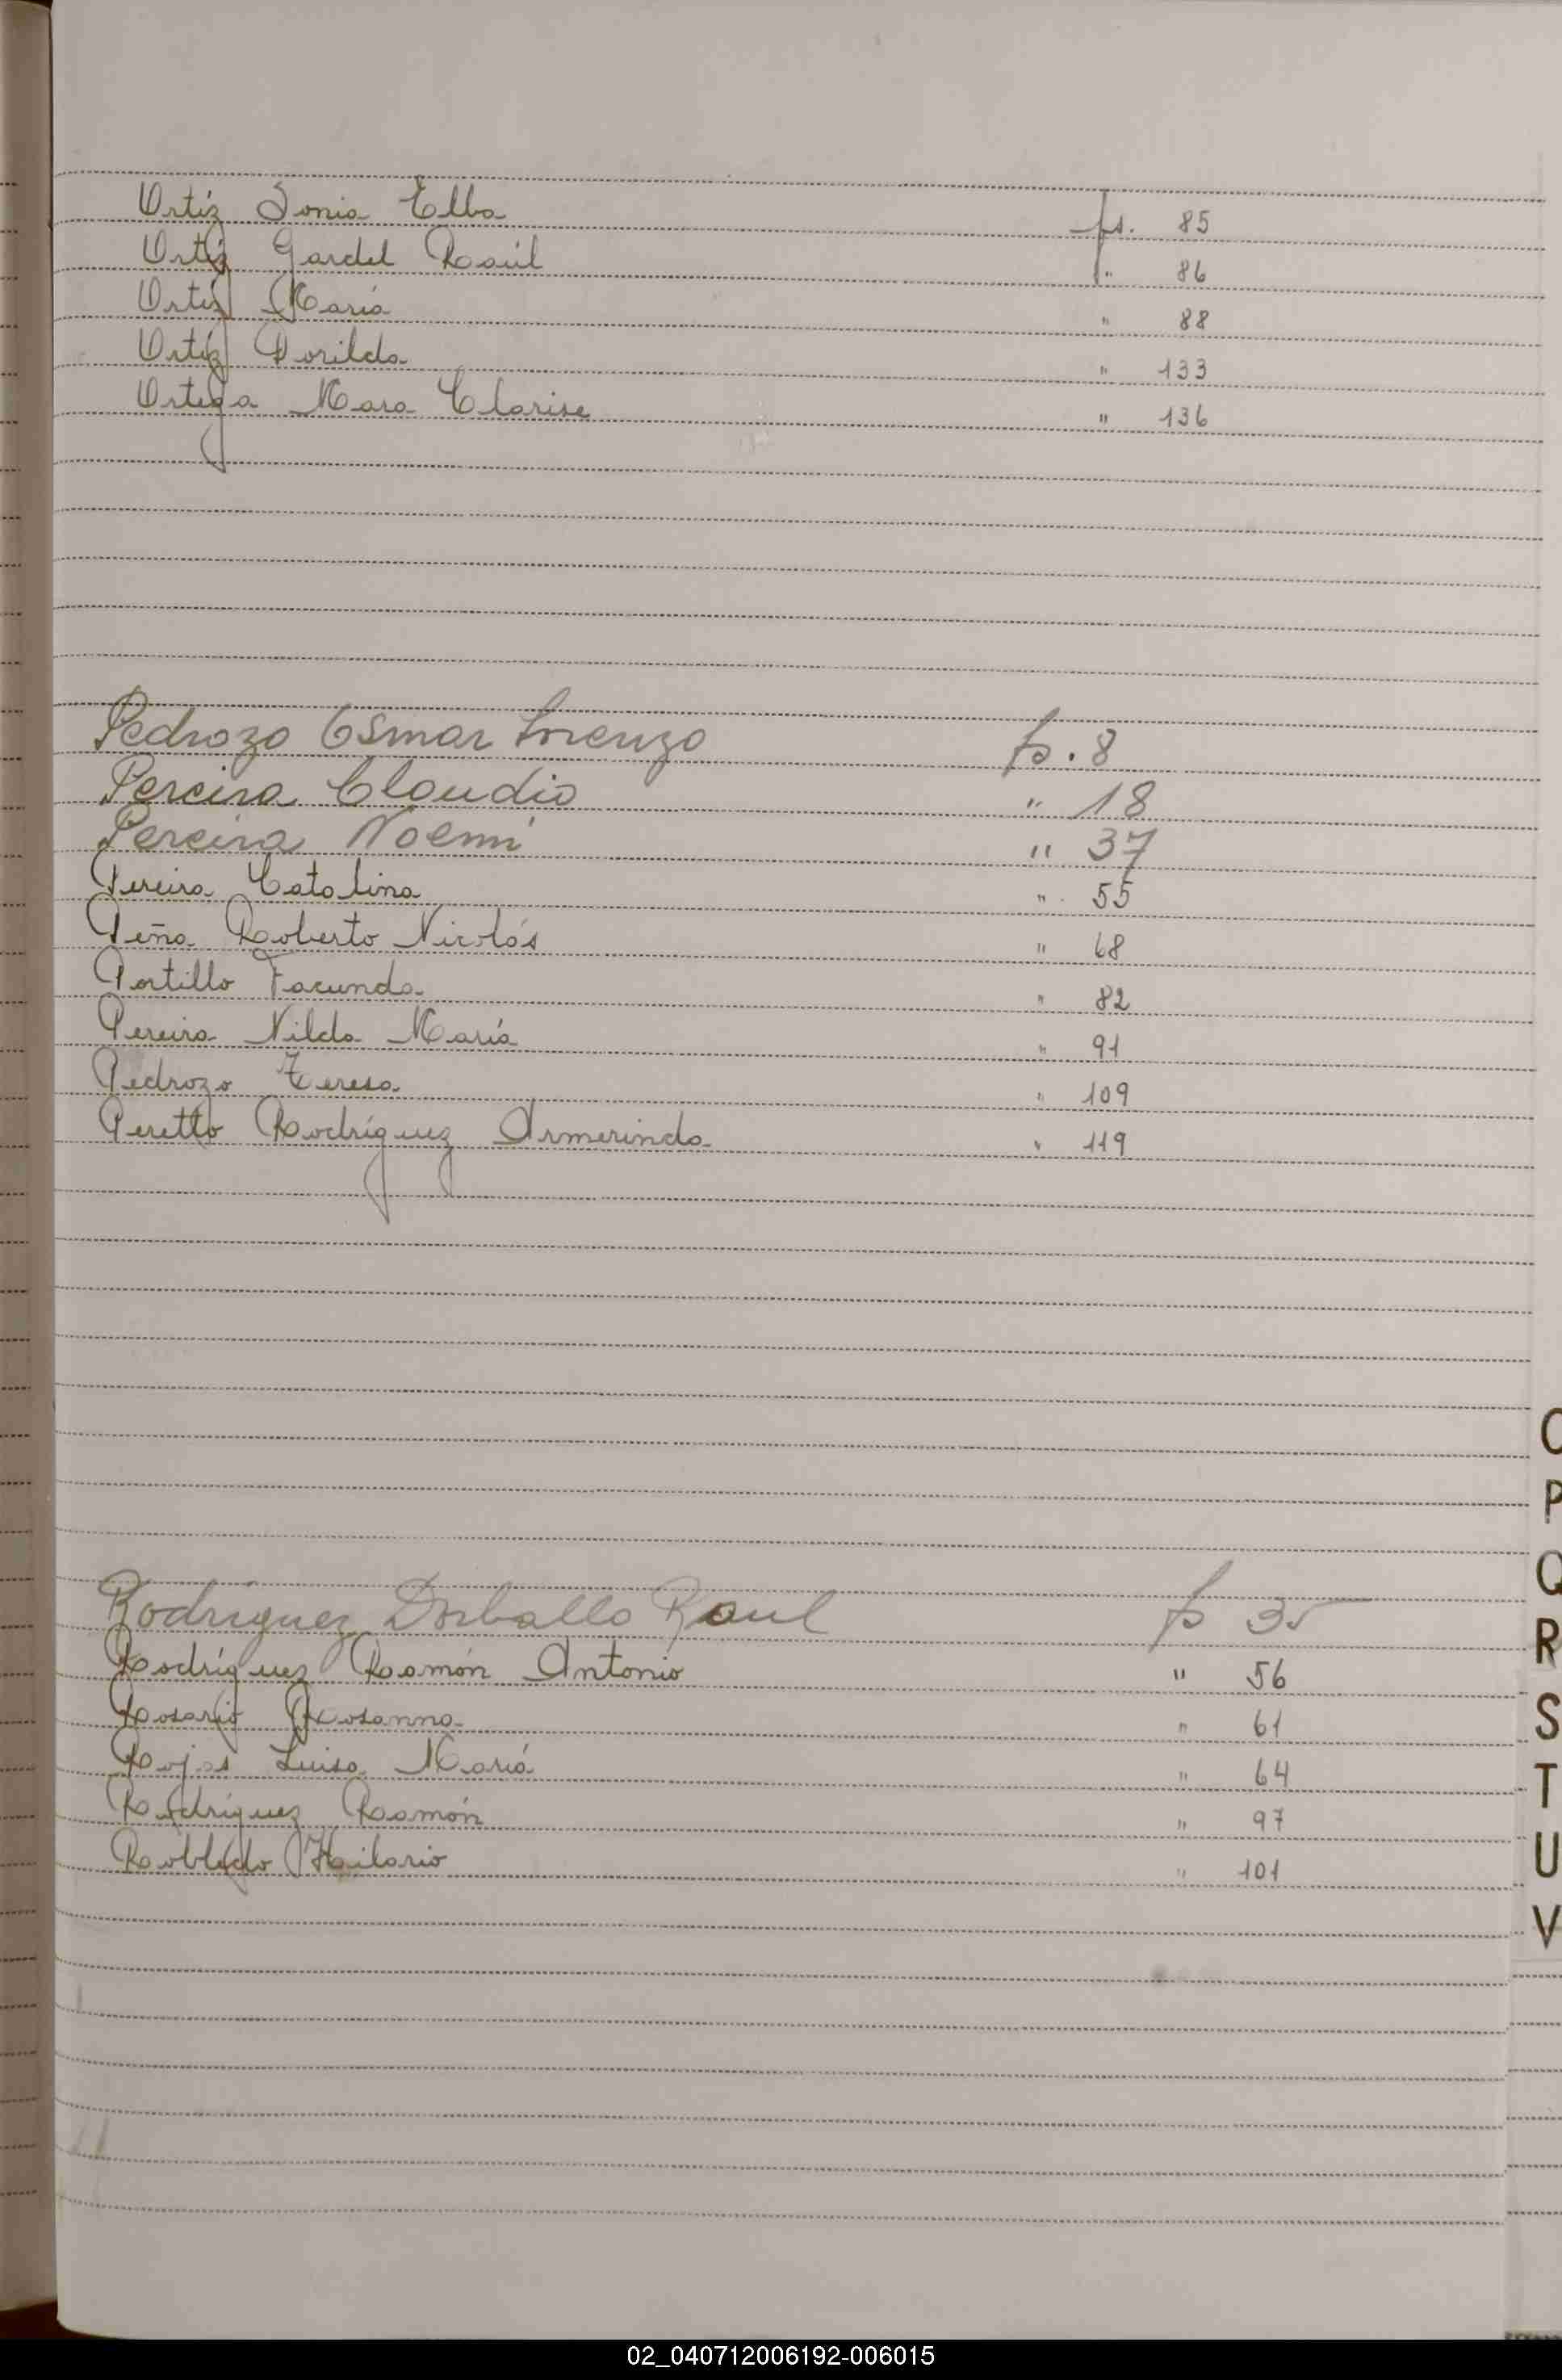 Ortíz Sonia Elba fs. 85
Ortíz Gardel Raúl " 86
Ortíz María " 88
Ortíz Dorilda " 133
Ortega Mara Clarise " 136
Pedrozo Osmar Lorenzo fs. 8
Pereira Claudio " 18
Pereira Noemí " 37
Pereira Catalina " 55
Peña Roberto Nicolás " 68
Portillo Facunda " 82
Pereira Nilda María " 91
Pedrozo Teresa " 109
Peretto Rodríguez Armerinda " 119
O
P
Q
Rodríguez Dorballo Raul fs 35
R
Rodríguez Ramón Antonio " 56
Rosario Rosanna " 61
S
Rojas Luisa María " 64
T
Rodríguez Ramón " 97
Robledo Hilario " 101
U
V
02_040712006192-006015